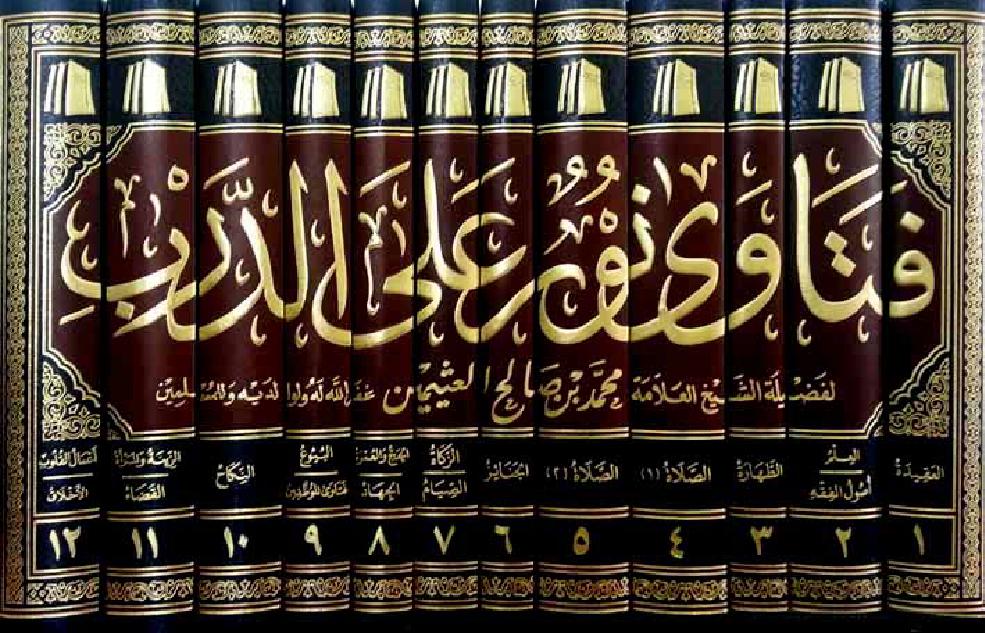 فَتَاوَى نُورٌ عَلَى الدَّرْبِ
لفضيلة الشيخ العلامة محمد بن صالح العثيمين غفر الله له ولوالديه وللمسلمين
العقيدة
العلم
أصول الفقه
الطهارة
الصلاة (١)
الصلاة (٢)
الجنائز
الزكاة
الصيام
الحج والعمرة
الجهاد
البيوع
فتاوى الموظفين
النكاح
الزينة والمرأة
القضاء
أعمال القلوب
الأخلاق
١ ٢ ٣ ٤ ٥ ٦ ٧ ٨ ٩ ١٠ ١١ ١٢